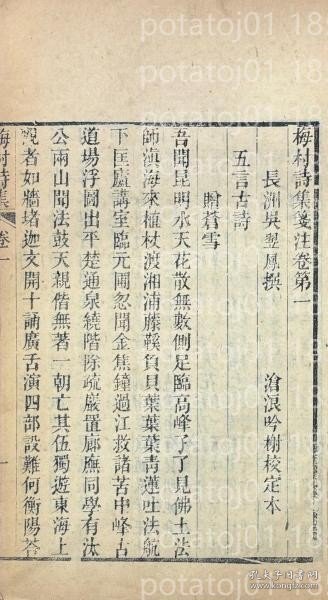 梅村詩集箋注卷第一
長洲吳翌鳳撰 滄浪吟榭校定本
五言古詩
贈蒼雪
吾聞昆明水天花散無數側足臨高峰了了見佛土法
師滇海來植杖渡湘浦藤鞵負貝葉葉葉靑蓮吐法航
下匡廬講室臨元圃忽聞金焦鐘過江救諸苦中峰古
道場浮圖出平楚通泉繞階除疏巖置廊廡同學有汰
公兩山聞法鼓天親偕無著一朝亡其伍獨遊東海上
從者如牆堵迦文開十誦廣舌演四部設難何衡陽答
梅村詩集 卷一 一
potatoj01 18
孔夫子旧书网